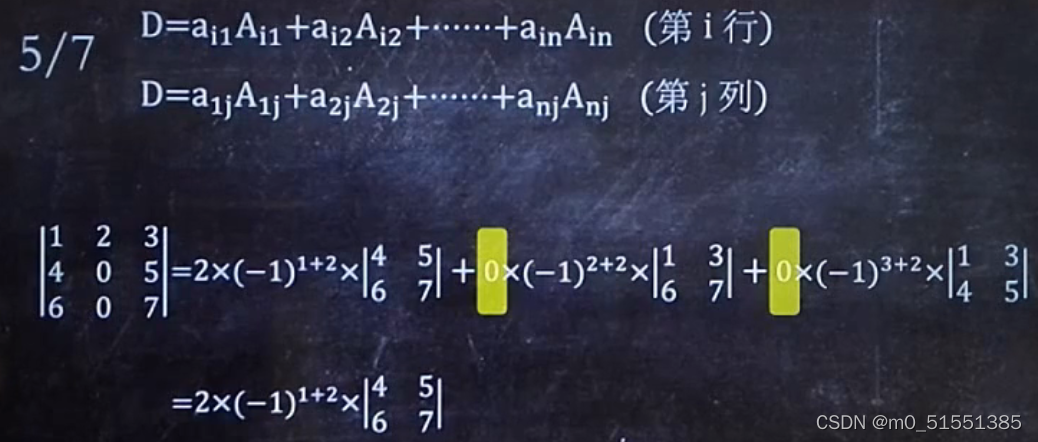 5/7
D=aᵢ₁Aᵢ₁+aᵢ₂Aᵢ₂+⋯⋯+aᵢₙAᵢₙ (第 i 行)
D=a₁ⱼA₁ⱼ+a₂ⱼA₂ⱼ+⋯⋯+aₙⱼAₙⱼ (第 j 列)
|1 2 3|
|4 0 5|=2×(−1)¹⁺²×|4 5; 6 7|+0×(−1)²⁺²×|1 3; 6 7|+0×(−1)³⁺²×|1 3; 4 5|
|6 0 7|
=2×(−1)¹⁺²×|4 5; 6 7|
CSDN @m0_51551385